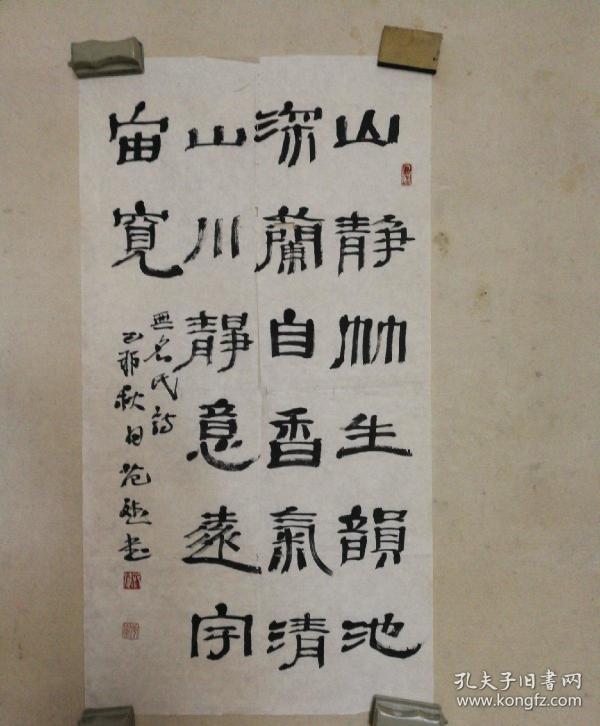 山静竹生韻池
深蘭自香氣清
山川靜意遠宇
宙寬
無名氏詩
乙卯秋月范
書
孔夫子旧书网
www.kongfz.com